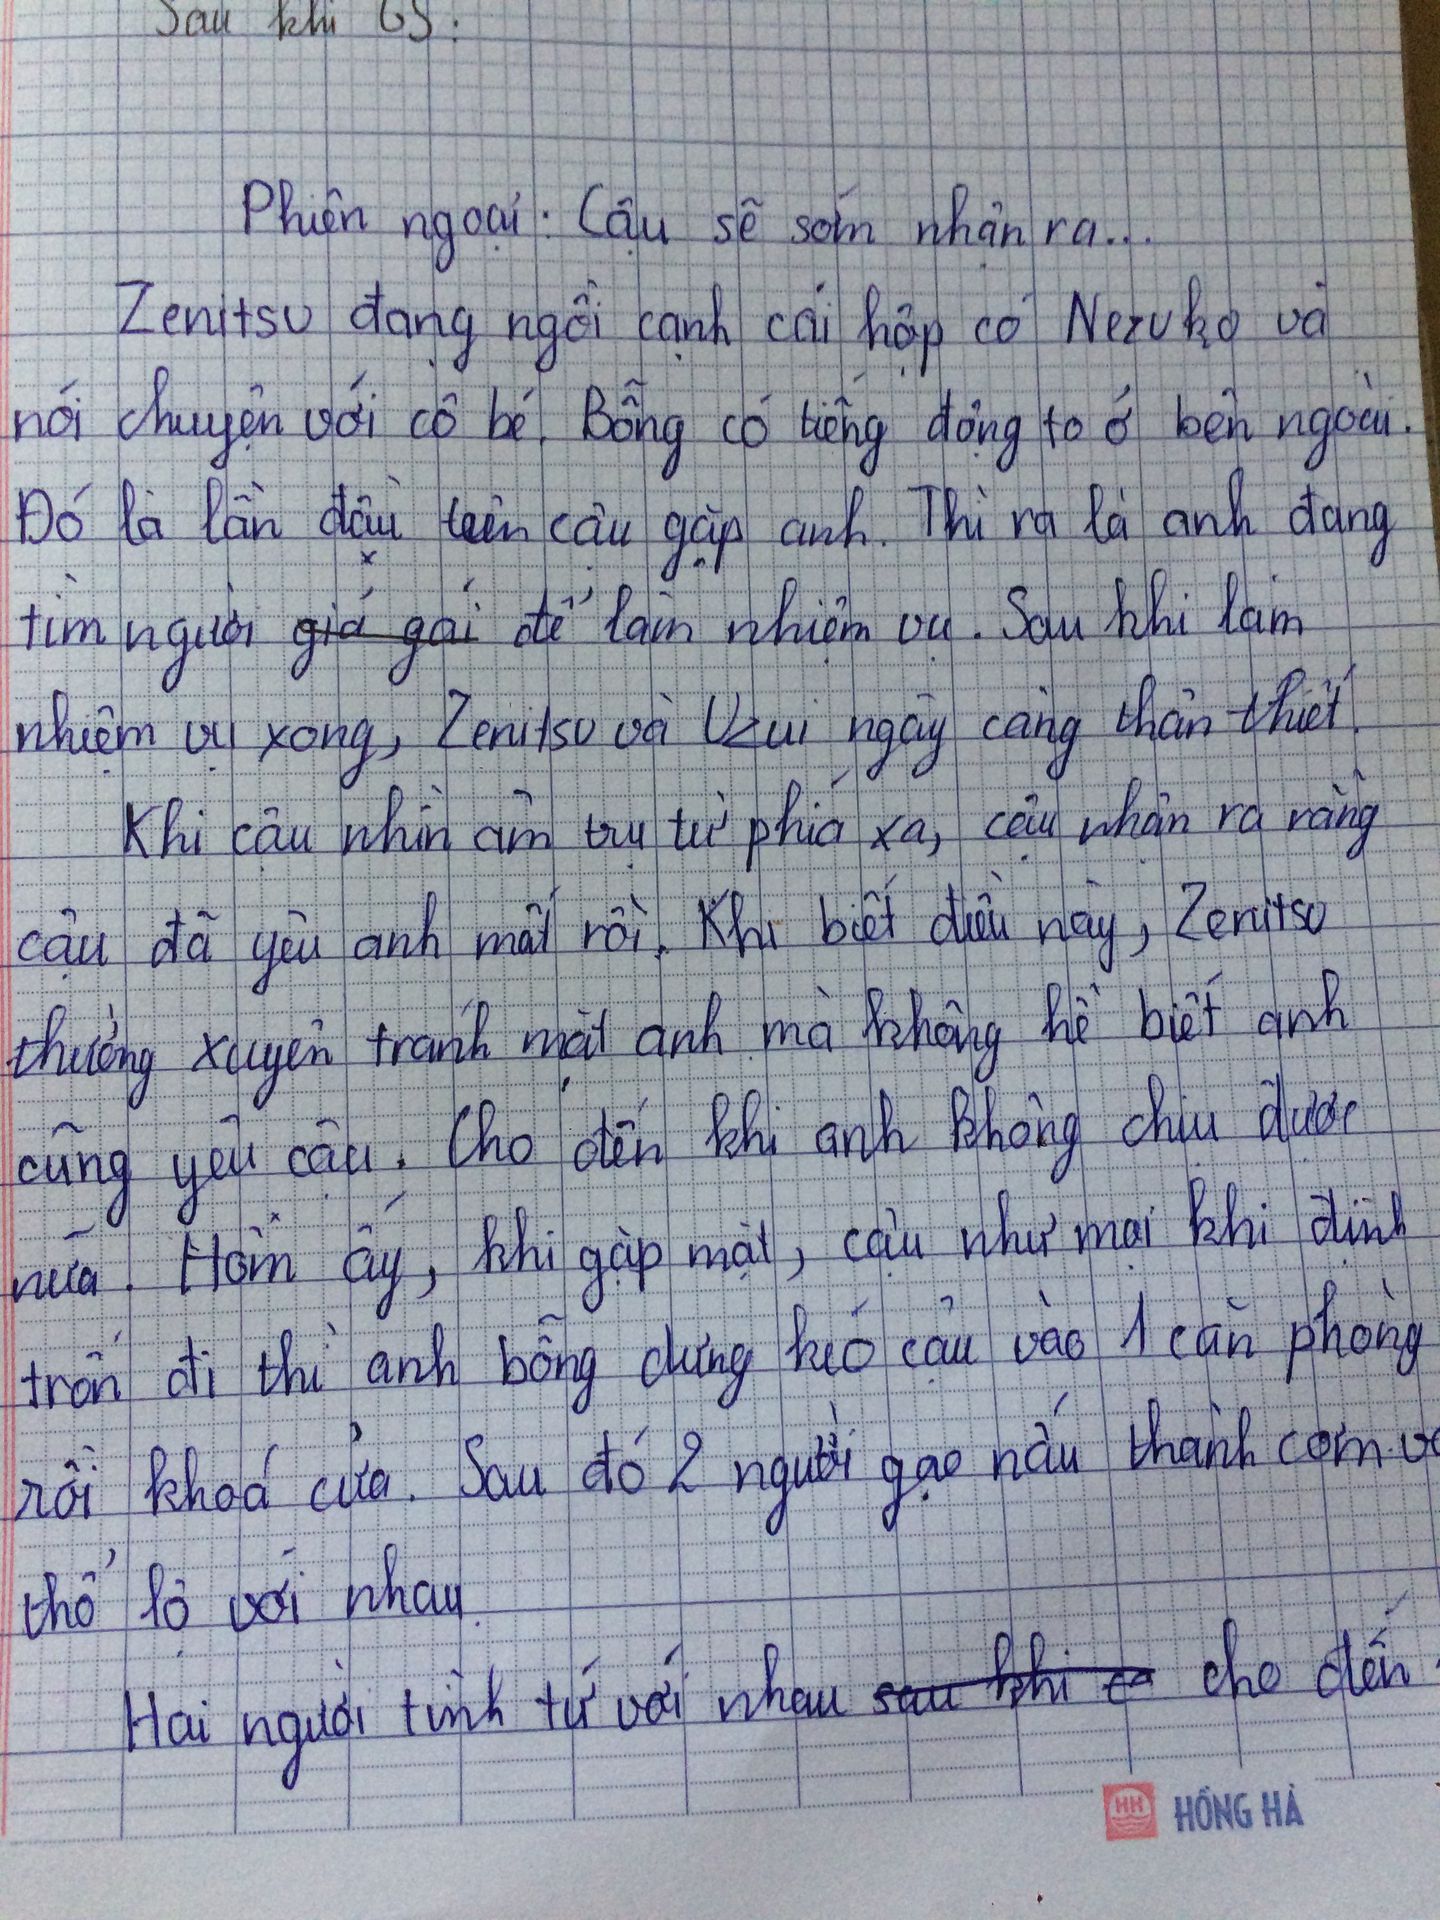 Sau khi GS:
Phiên ngoại: Cậu sẽ sớm nhận ra...
Zenitsu đang ngồi cạnh cái hộp có Nezuko và
nói chuyện với cô bé. Bỗng có tiếng động to ở bên ngoài.
Đó là lần đầu tiên cậu gặp anh. Thì ra là anh đang
tìm người giá gái để làm nhiệm vụ. Sau khi làm
nhiệm vụ xong, Zenitsu và Uzui ngày càng thân thiết.
Khi cậu nhìn âm trụ từ phía xa, cậu nhận ra rằng
cậu đã yêu anh mất rồi. Khi biết điều này, Zenitsu
thường xuyên tránh mặt anh mà không hề biết anh
cũng yêu cậu. Cho đến khi anh không chịu được
nữa. Hôm ấy, khi gặp mặt, cậu như mọi khi định
trốn đi thì anh bỗng dưng kéo cậu vào 1 căn phòng
rồi khoá cửa. Sau đó 2 người gạo nấu thành cơm và
thổ lộ với nhau.
Hai người tình tứ với nhau sau khi cho đến
HH HỒNG HÀ